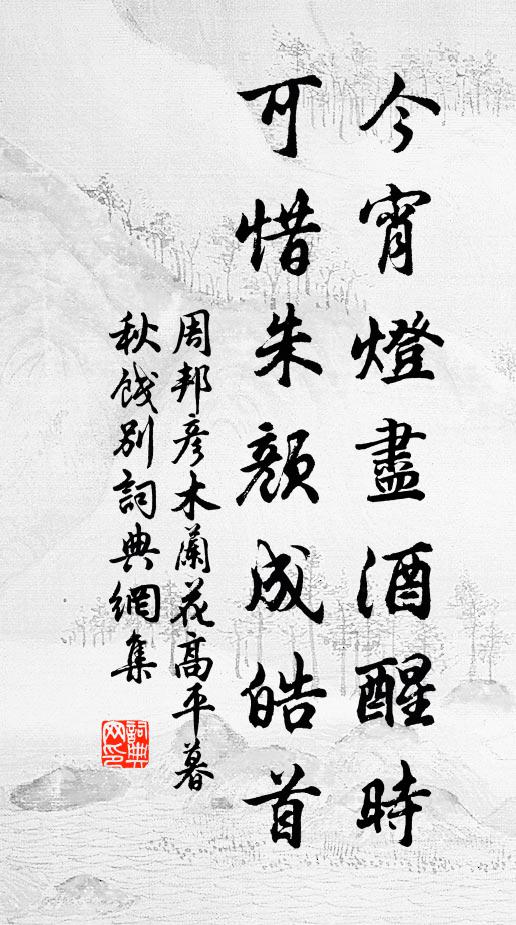 今宵燈盡酒醒時
可惜朱顏成皓首
周邦彥木蘭花高平暮
秋餞別詞典網集
詞典